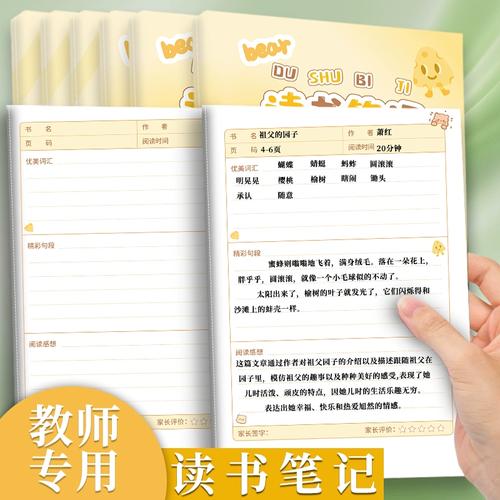 bear
bear
DU SHU BI JI
读书笔记
书 名
作 者
页 码
阅读时间
优美词汇
精彩句段
阅读感想
家长评价：☆☆☆☆☆
书 名 祖父的园子 作 者 萧红
页 码 4-6页 阅读时间 20分钟
优美词汇 蝴蝶 蜻蜓 蚂蚱 圆滚滚
明晃晃 樱桃 榆树 瞎闹 锄头
承认 随意
精彩句段
蜜蜂则嗡嗡地飞着，满身绒毛。落在一朵花上，
胖乎乎，圆滚滚，就像一个小毛球似的不动了。
太阳出来了，榆树的叶子就发光了，它们闪烁得和
沙滩上的蚌壳一样。
阅读感想
这篇文章通过作者对祖父园子的介绍以及描述跟随祖父在
园子里，模仿祖父的趣事以及种种美好的感受，表现了她
儿时活泼、顽皮的特点，因她儿时的生活乐趣无穷。
表达出她幸福、快乐和热爱旭然的情感。
家长签字： 家长评价：☆☆☆☆☆
教师
专用
读书笔记